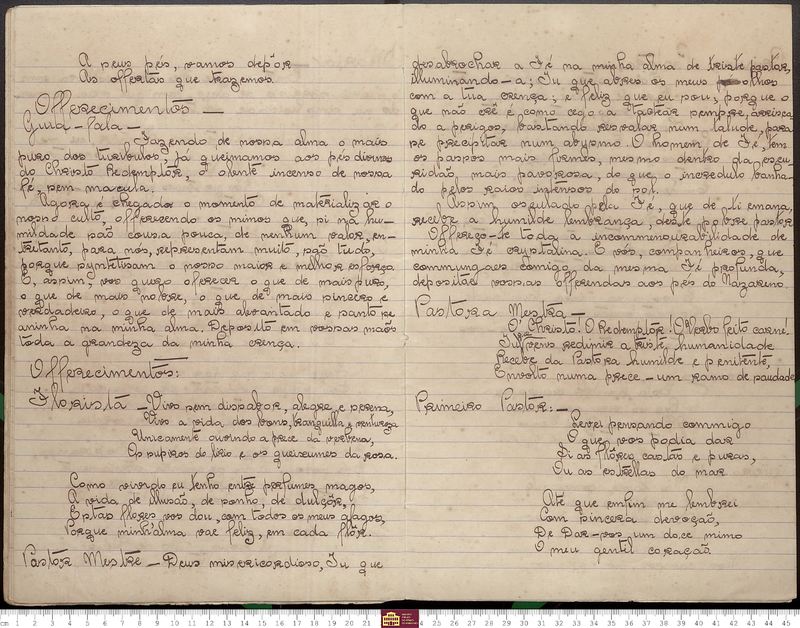 A seus pés, vamos depôr
As offertas que trazemos.
Offerecimentos —
Guia-Fala —
Fazendo de nossa alma o mais
puro, dos turibulos, já queimamos aos pés divinos
do Christo Redemptor, o olente incenso de nossa
fé, sem macula.
Agora é chegado o momento de materializar o
nosso culto, offerecendo os mimos que, si na hu-
mildade são cousa pouca, de nenhum valor, en-
tretanto, para nós, representam muito, são tudo,
porque synthetisam o nosso maior e melhor esforço.
E, assim, vos quero offerecer o que de mais puro,
o que de mais nobre, o que de mais sincero e
verdadeiro, o que de mais alevantado e santo se
aninha na minha alma. Deposito em vossas mãos
toda a grandeza da minha crença.
Offerecimentos:
Florista — Vivo sem dissabor, alegre e serena,
Vivo a vida dos bons, tranquilla e venturosa
Unicamente ouvindo a prece da verbena,
Os supiros do lirio e os queixumes da rosa.
Como vivendo eu tenho entre perfumes magos,
A vida, de illusão, de sonho, de dulçôr,
Estas flores vos dou, com todos os meus afagos,
Porque minh'alma vae feliz, em cada flôr.
Pastôr Mestre — Deus misericordioso, Tu que
desabrochar a Fé na minha alma de triste pastor,
illuminando-a; Tu que abres os meus olhos
com a tua crença; e feliz que eu sou, porque o
que não crê é como cego a tactear sempre, arrisca
do a perigos, bastando resvalar num talude, para
se precipitar num abysmo. O homem de Fé, tem
os passos mais firmes, mesmo dentro da escu-
ridão, mais pavorosa, do que o incredulo banha-
do pelos raios intensos do sol.
Assim osculado pela Fé, que de ti emana,
recebe a humilde lembrança, deste pobre pastor.
Offereço-te toda a incommensurabilidade de
minha Fé crystalina. E vós, companheiros, que
commungaes comigo da mesma Fé profunda,
depositae vossas offerendas aos pés do Nazareno.
Pastora Mestra —
O' Christo! O Redemptôr! O Verbo feito carne!
Tu que vens redimir a triste humanidade
Recebe da Pastora humilde e penitente,
Envolto numa prece — um ramo de saudade
Primeiro Pastôr: —
Levei pensando commigo
O que vos podia dar
Si as flôres castas e puras,
Ou as estrellas do mar
Até que emfim me lembrei
Com sincera devoção,
De Dar-vos, um doce mimo
O meu gentil coração.